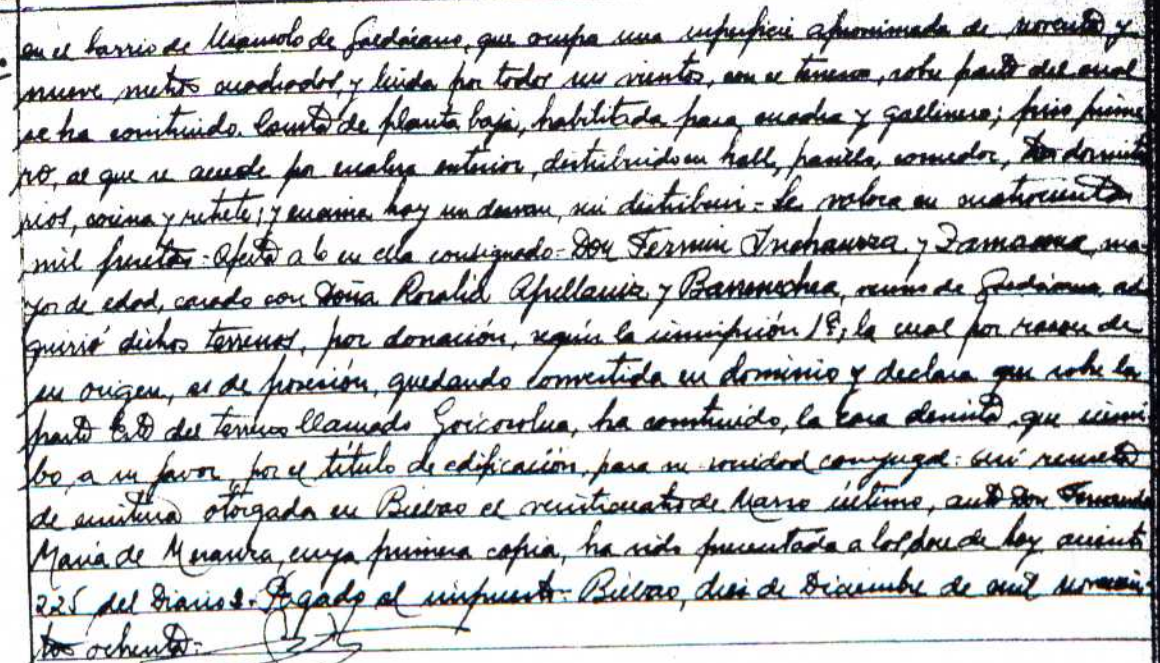 en el barrio de Usansolo de Galdácano, que ocupa una superficie aproximada de noventa y
nueve metros cuadrados, y linda por todos sus vientos, con el terreno, sobre parte del cual
se ha construido. Consta de planta baja, habilitada para cuadra y gallinero; piso prime
ro, al que se accede por escalera exterior, distribuido en hall, pasillo, comedor, tres dormito
rios, cocina y retrete; y encima hay un desvan, sin distribuir.- Se valora en cuatrocientas
mil pesetas.- Afecta a lo en ella consignado.- Don Fermin Inchaurza y Zamacona, ma-
yor de edad, casado con Doña Rosalia Apellaniz y Barrenechea, vecino de Galdácano, ad
quirió dichos terrenos, por donación, según la inscripción 1ª; la cual por razon de
su origen, es de posesión, quedando convertida en dominio y declara que sobre la
parte Este del terreno llamado Goicosolua, ha construido, la casa descrita, que inscri
bo, a su favor, por el título de edificación, para su sociedad conyugal: así resulta
de escritura otorgada en Bilbao el veinticuatro de Marzo último, ante Don Fernando
Maria de, cuya primera copia, ha sido presentada a las doce de hoy asiento
225 del Diario Pagado el impuesto.- Bilbao, diez de Diciembre de mil novecien
tos ochenta.-